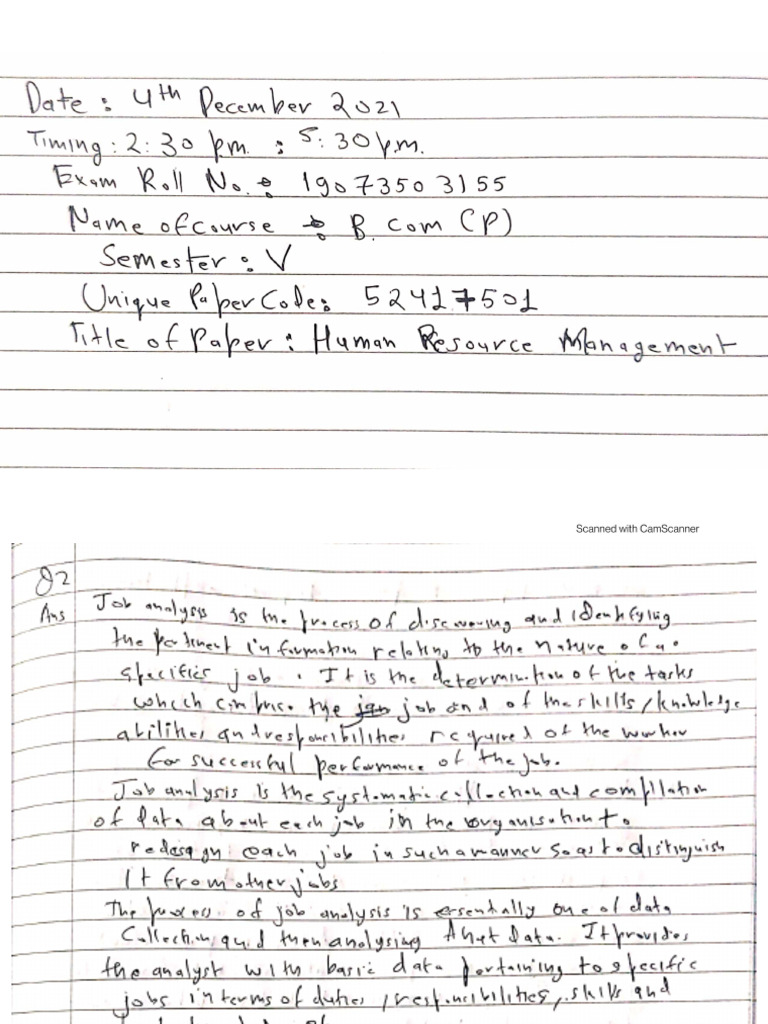 Date : 4th December 2021
Timing : 2:30 p.m. : 5:30 p.m.
Exam Roll No. : 19073503155
Name of course : B. Com (P)
Semester : V
Unique Paper Code: 52417501
Title of Paper : Human Resource Management
Scanned with CamScanner
Q2
Ans Job analysis is the process of discovering and identifying
the pertinent information relating to the nature of a
specific job. It is the determination of the tasks
which comprise the job and of the skills, knowledge
abilities and responsibilities required of the worker
for successful performance of the job.
Job analysis is the systematic collection and compilation
of data about each job in the organisation to
redesign each job in such a manner so as to distinguish
it from other jobs
The process of job analysis is essentially one of data
Collection and then analysing that data. It provides
the analyst with basic data pertaining to specific
jobs in terms of duties, responsibilities, skills and